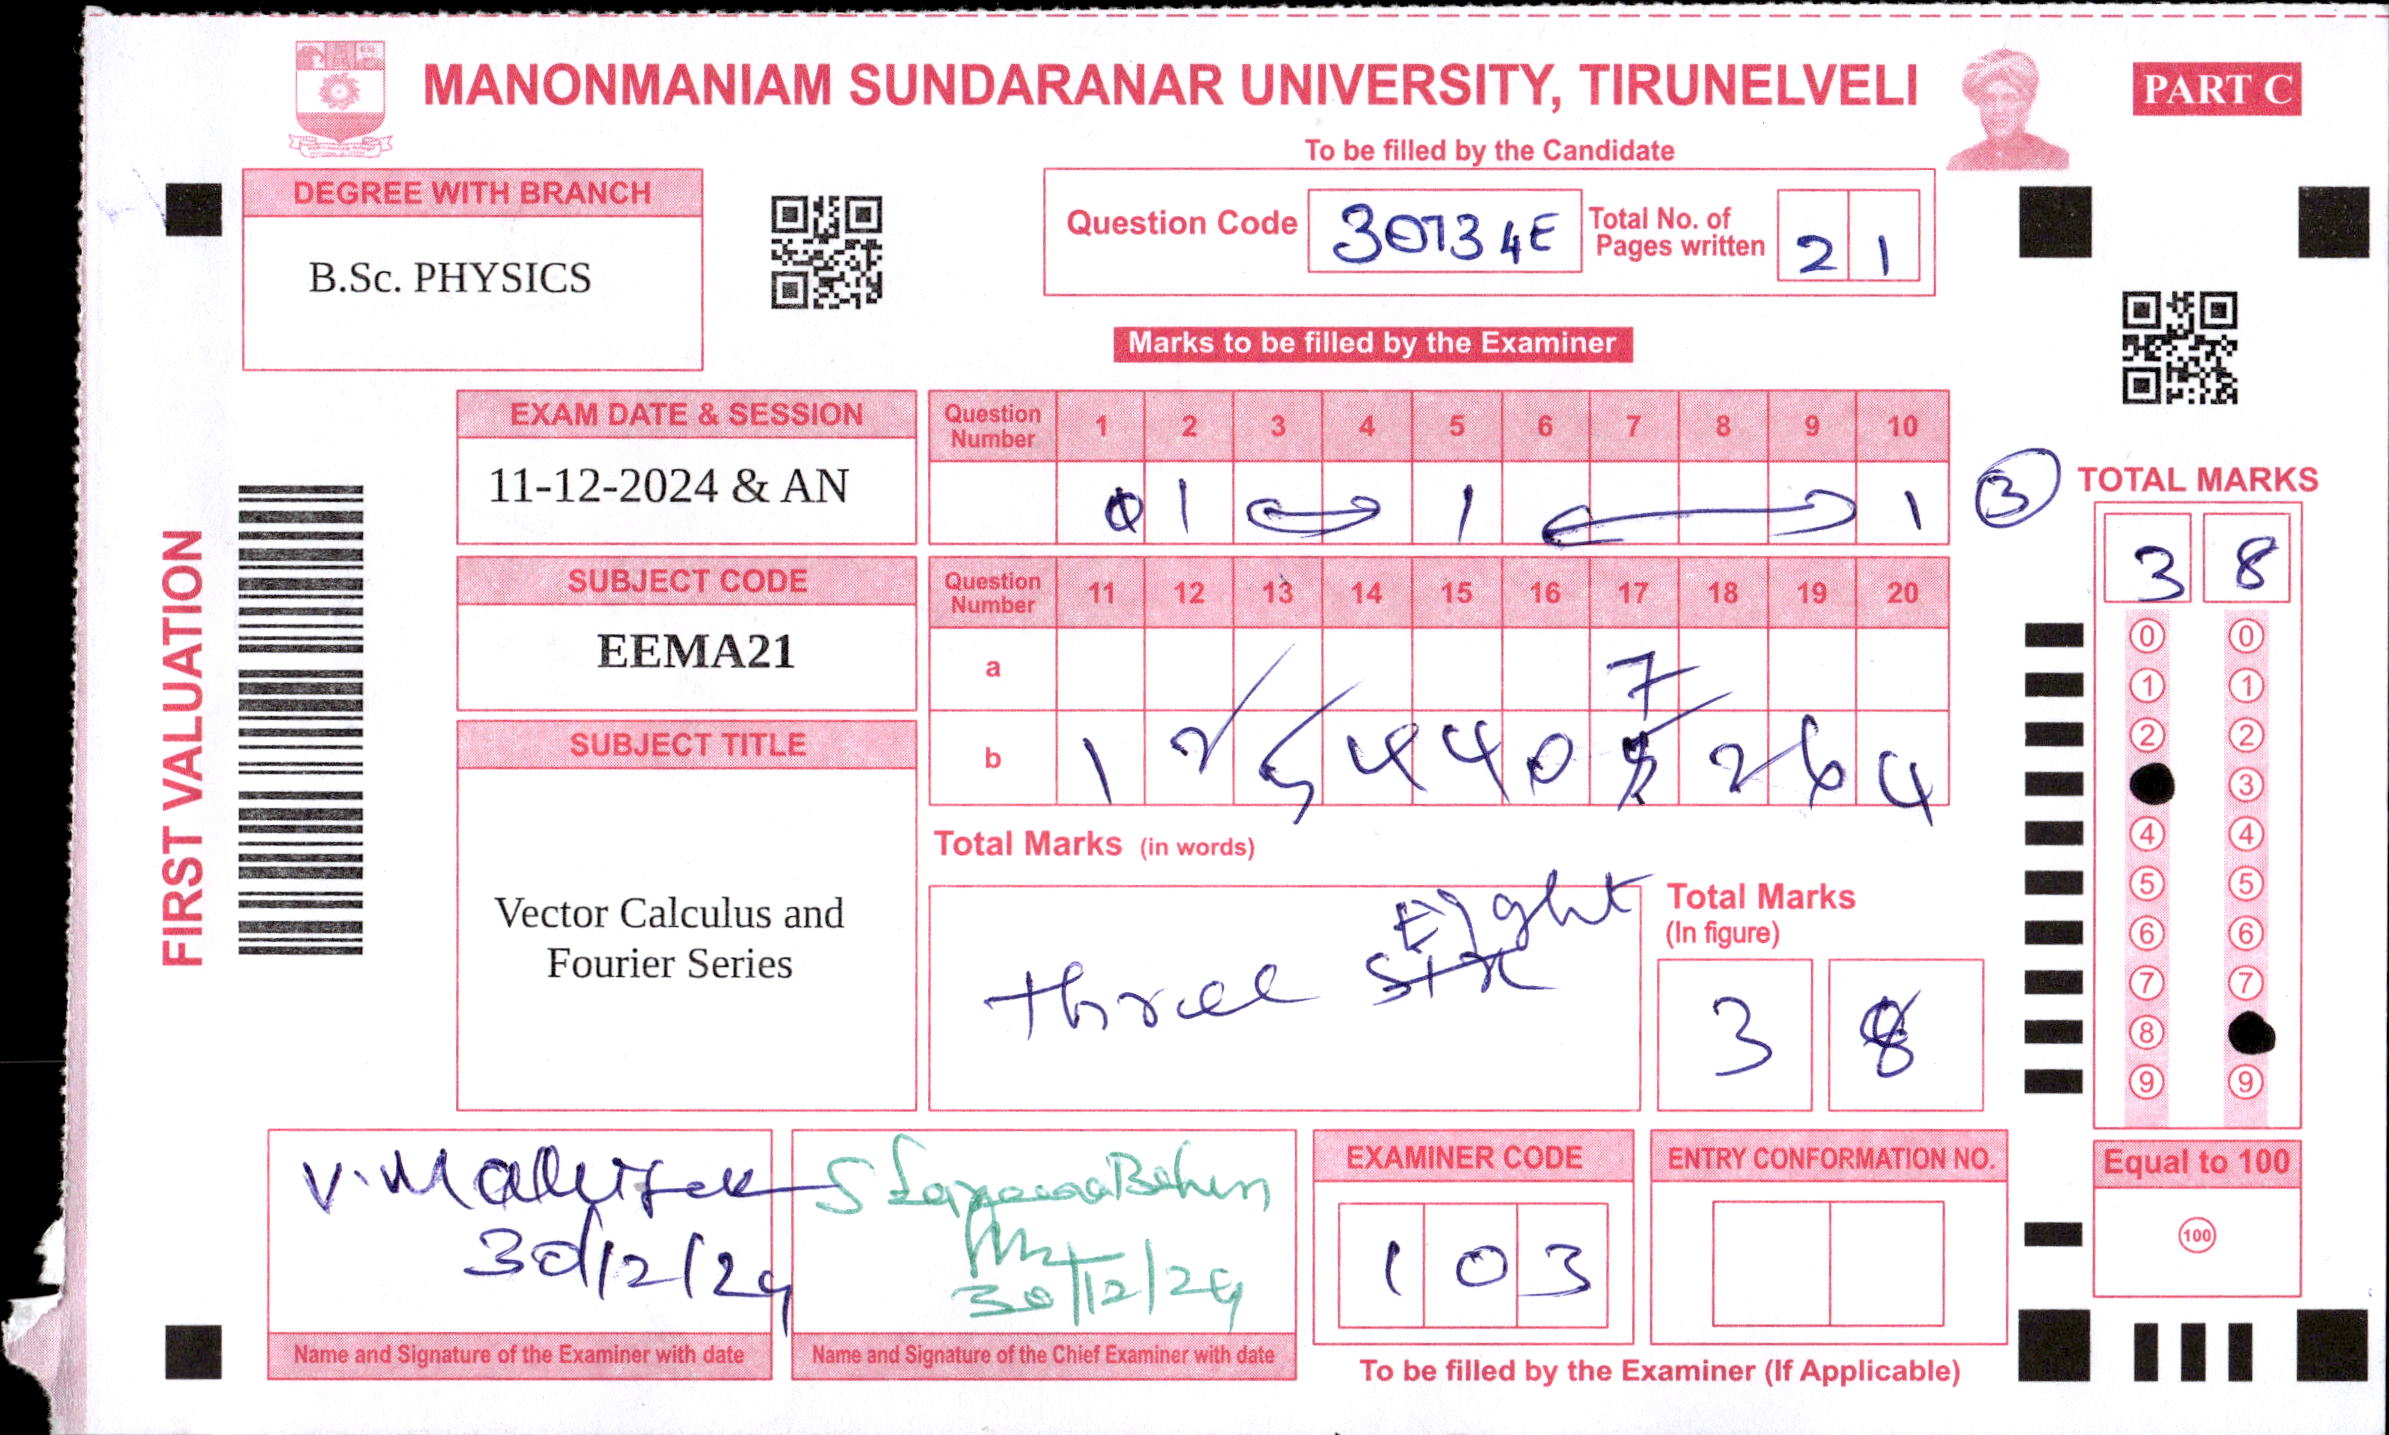 MANONMANIAM SUNDARANAR UNIVERSITY, TIRUNELVELI
PART C
To be filled by the Candidate
DEGREE WITH BRANCH
B.Sc. PHYSICS
Question Code 30734E Total No. of Pages written 2 1
Marks to be filled by the Examiner
FIRST VALUATION
EXAM DATE & SESSION
11-12-2024 & AN
Question Number 1 2 3 4 5 6 7 8 9 10
1 1 1
3
SUBJECT CODE
EEMA21
Question Number 11 12 13 14 15 16 17 18 19 20
a 7
b 1 2 5 4 4 0 2 6 4
SUBJECT TITLE
Vector Calculus and
Fourier Series
Total Marks (in words)
three six Eight
Total Marks
(In figure)
3 8
TOTAL MARKS
3 8
0 0
1 1
2 2
3
4 4
5 5
6 6
7 7
8
9 9
Equal to 100
100
30/12/24
Name and Signature of the Examiner with date
30/12/24
Name and Signature of the Chief Examiner with date
EXAMINER CODE
1 0 3
ENTRY CONFORMATION NO.
To be filled by the Examiner (If Applicable)